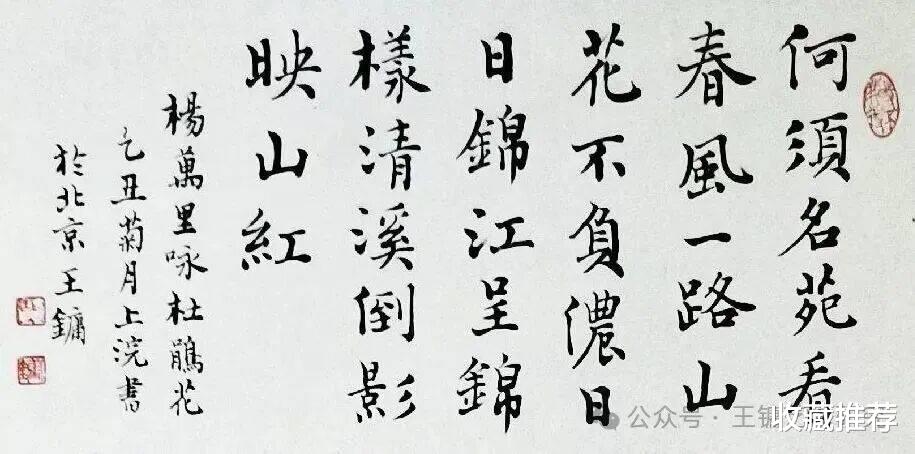 何須名苑看
春風一路山
花不負儂日
日錦江呈錦
樣清溪倒影
映山紅
楊萬里咏杜鵑花
乙丑菊月上浣書
於北京王鏞
公众号·王
收藏推荐